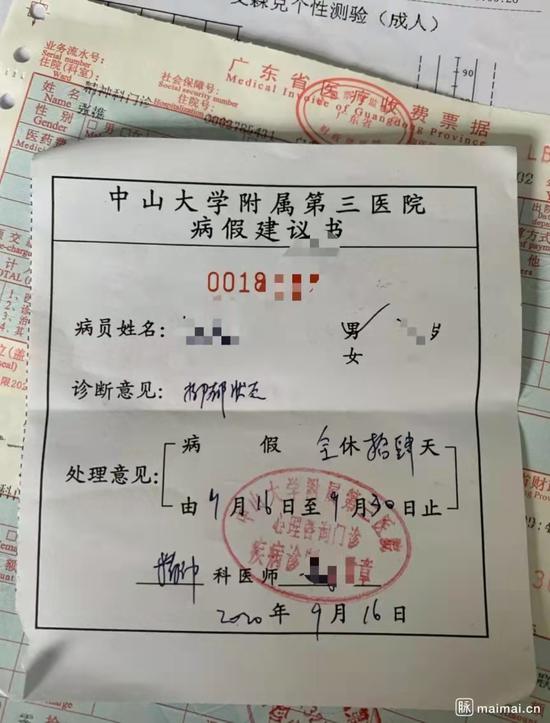 艾森克个性测验(成人)
90
业务流水号:
Serial number
住院(科室):
Ward
精神科门诊
社会保障号:
Social security number
住院号:
广东省医疗收费票据
Medical Invoice of Guangdong Province
姓名
Name
性别
Gender
医药费
Medical
中山大学附属第三医院
病假建议书
0018
病员姓名:
男
女
诊断意见: 抑郁状态
处理意见:
病假 全休拾肆天
由9月16日至9月30日止
中山大学附属第三医院
心理咨询门诊
疾病诊
章
精神科医师
2020年9月16日
脉 maimai.cn